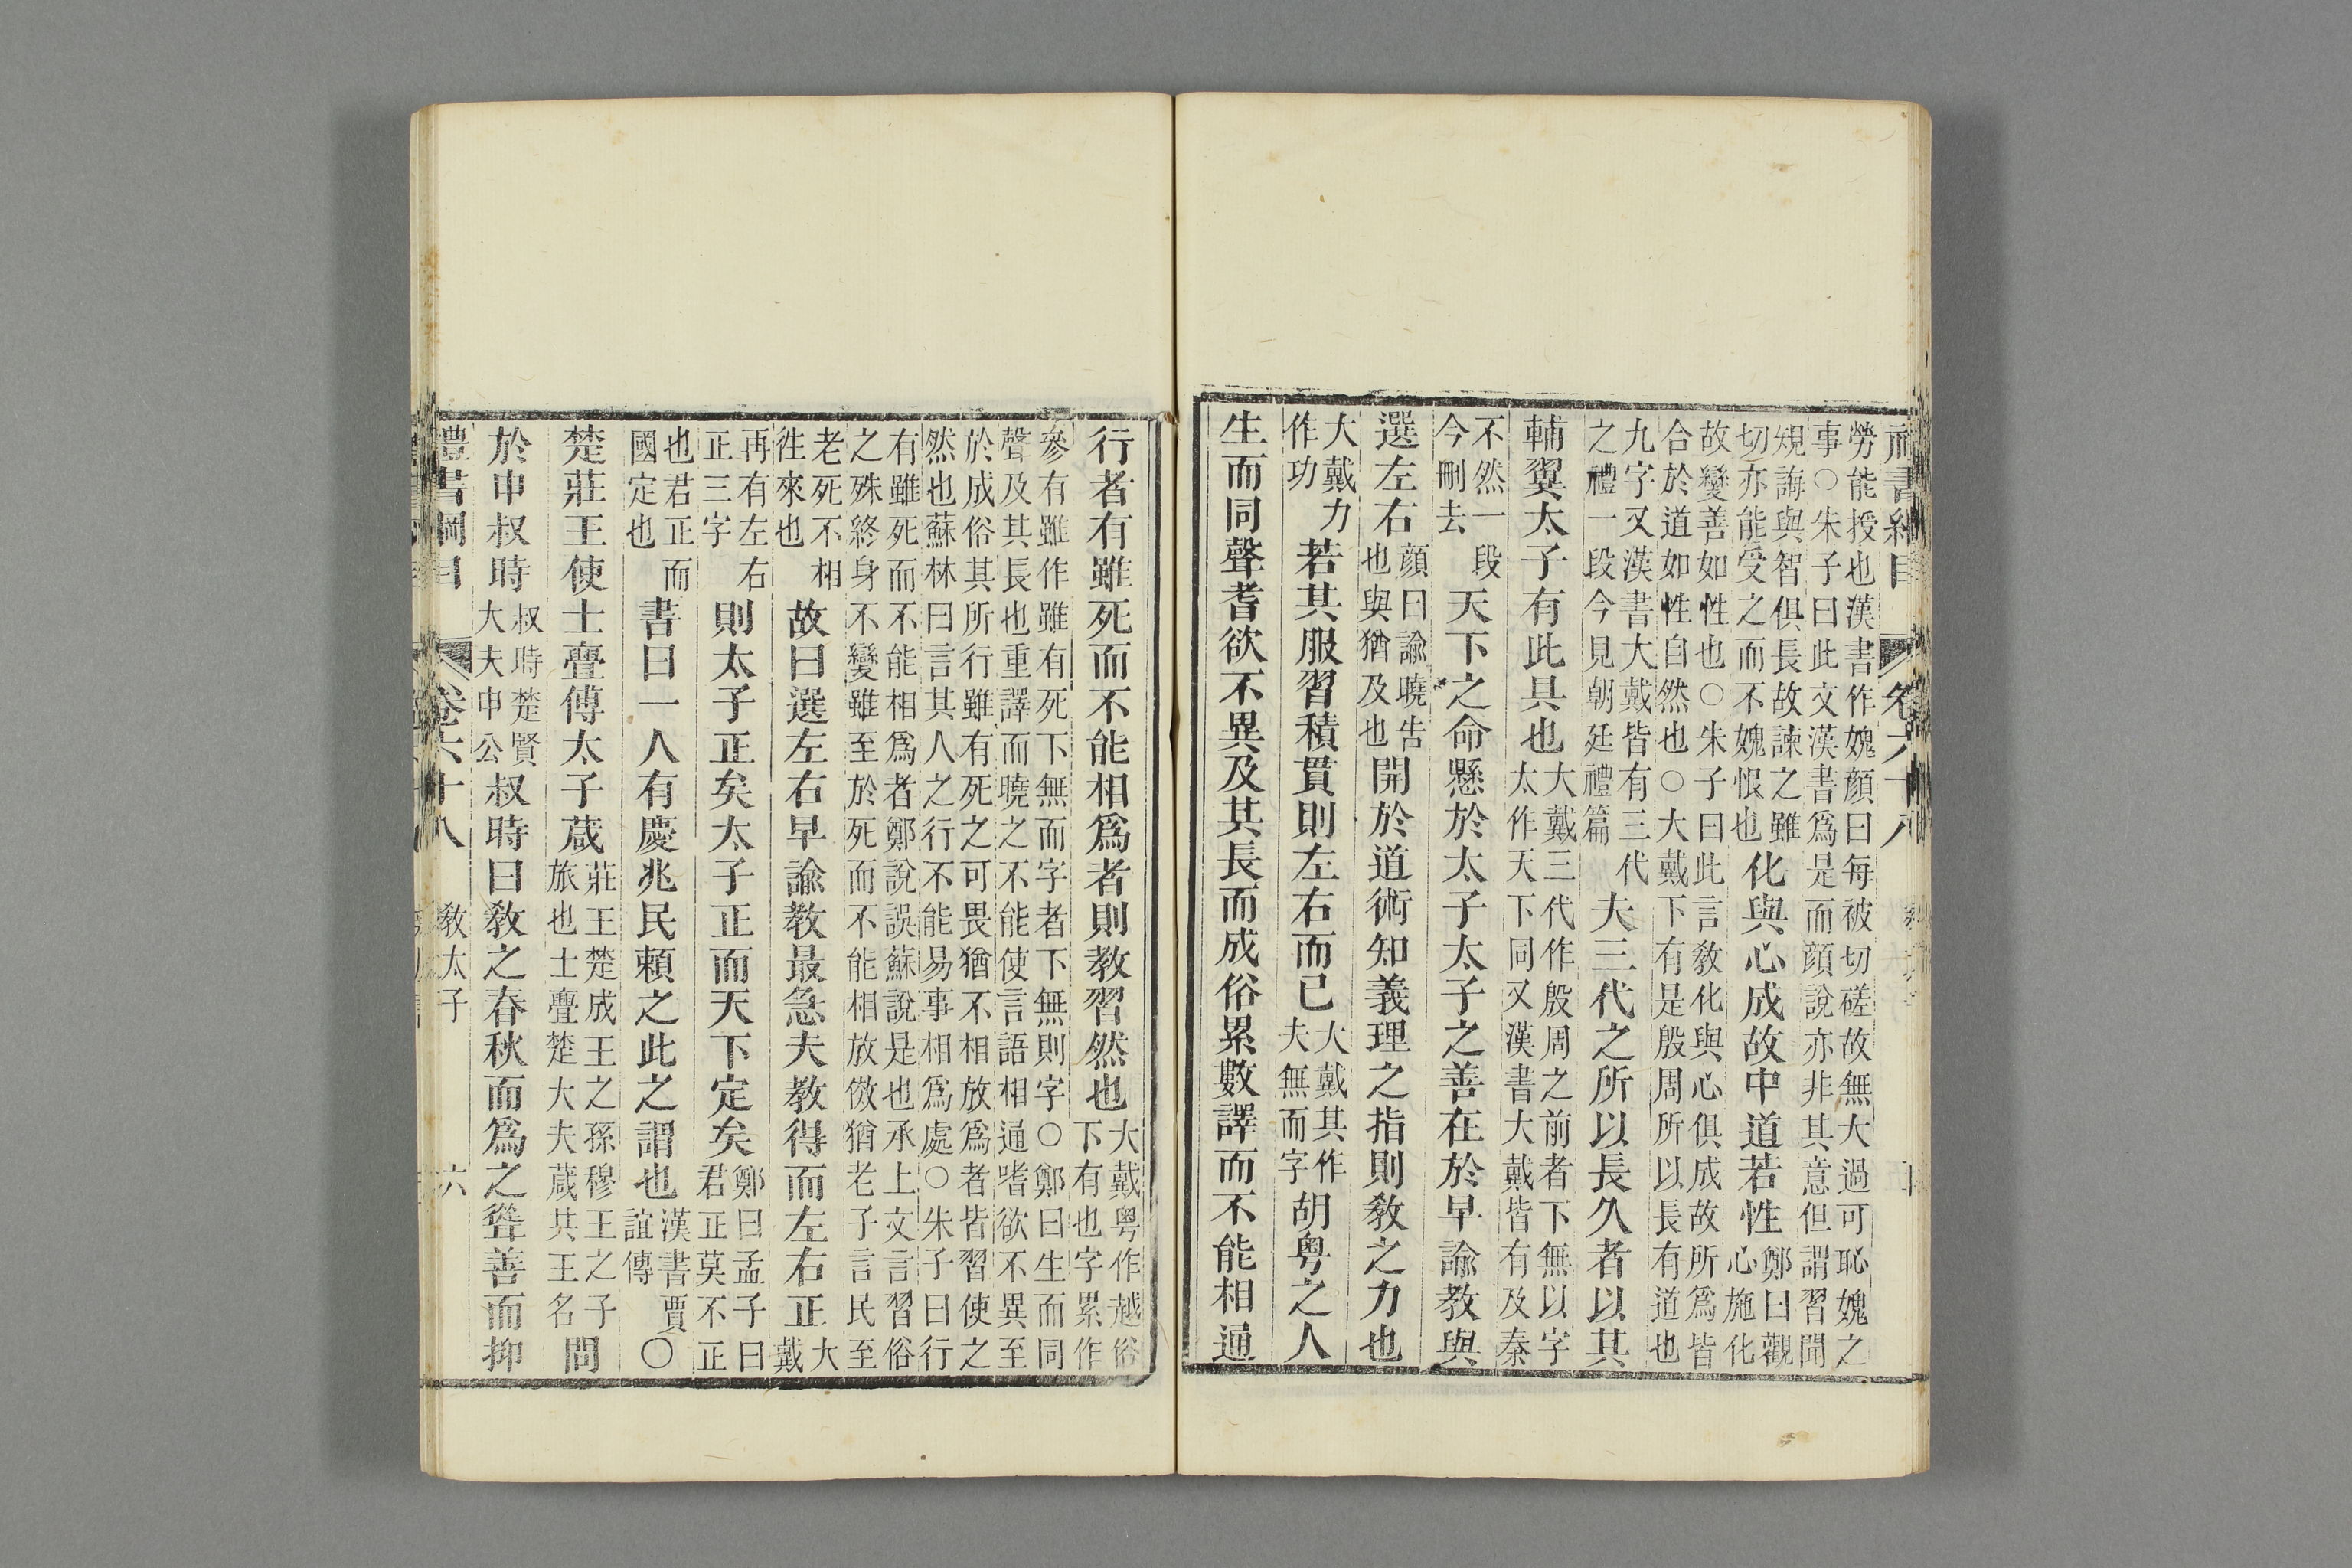 禮書綱目 卷六十八
勞能授也漢書作媿顏曰每被切磋故無大過可恥媿之
事○朱子曰此文漢書爲是而顏說亦非其意但謂習聞
規誨與智俱長故諫之雖
切亦能受之而不媿恨也
化與心成故中道若性
鄭曰觀
心施化
故變善如性也○朱子曰此言教化與心俱成故所爲皆
合於道如性自然也○大戴下有是殷周所以長有道也
九字又漢書大戴皆有三代
之禮一段今見朝廷禮篇
夫三代之所以長久者以其
輔翼太子有此具也
大戴三代作殷周之前者下無以字
太作天下同又漢書大戴皆有及秦
不然一段
今刪去
天下之命懸於太子太子之善在於早諭教與
選左右
顏曰諭曉告
也與猶及也
開於道術知義理之指則教之力也
大戴力
作功
若其服習積貫則左右而已
大戴其作
夫無而字
胡粤之人
生而同聲耆欲不異及其長而成俗累數譯而不能相通
行者有雖死而不能相爲者則教習然也
大戴粤作越俗
下有也字累作
參有雖作雖有死下無而字者下無則字○鄭曰生而同
聲及其長也重譯而曉之不能使言語相通嗜欲不異至
於成俗其所行雖有死之可畏猶不相放爲者皆習使之
然也蘇林曰言其人之行不能易事相爲處○朱子曰行
有雖死而不能相爲者鄭說誤蘇說是也承上文言習俗
之殊終身不變雖至於死而不能相放傚猶老子言民至
老死不相
徃來也
故曰選左右早諭教最急夫教得而左右正
大
戴
再有左右
正三字
則太子正矣太子正而天下定矣
鄭曰孟子曰
君正莫不正
也君正而
國定也
書曰一人有慶兆民賴之此之謂也
漢書賈
誼傳
○
楚莊王使士亹傅太子葴
莊王楚成王之孫穆王之子
旅也士亹楚大夫葴共王名
問
於申叔時
叔時楚賢
大夫申公
叔時曰教之春秋而爲之聳善而抑
禮書綱目 卷六十八 教太子 六